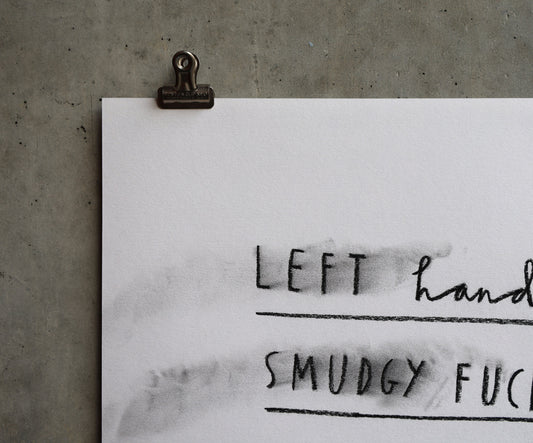 LEFT hand
SMUDGY FUC